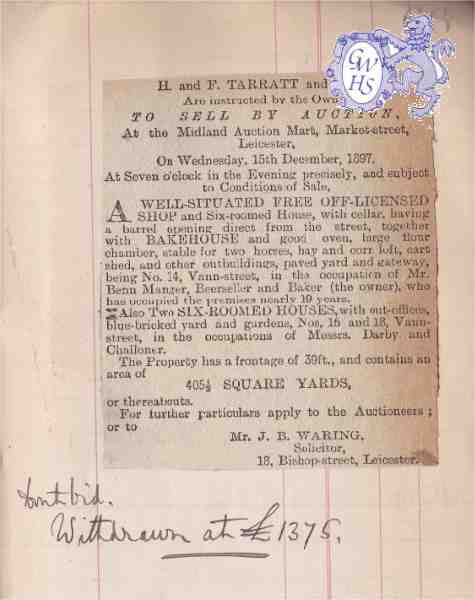 H. and F. TARRATT and
Are instructed by the Own
TO SELL BY AUCTION,
At the Midland Auction Mart, Market-street,
Leicester,
On Wednesday, 15th December, 1897.
At Seven o'clock in the Evening precisely, and subject
to Conditions of Sale,
A WELL-SITUATED FREE OFF-LICENSED
SHOP and Six-roomed House, with cellar, having
a barrel opening direct from the street, together
with BAKEHOUSE and good oven, large flour
chamber, stable for two horses, hay and corn loft, cart
shed, and other outbuildings, paved yard and gateway,
being No. 14, Vann-street, in the occupation of Mr.
Benn Manger, Beerseller and Baker (the owner), who
has occupied the premises nearly 19 years.
Also Two SIX-ROOMED HOUSES, with out-offices,
blue-bricked yard and gardens, Nos. 16 and 18, Vann-
street, in the occupations of Messrs. Darby and
Challoner.
The Property has a frontage of 39ft., and contains an
area of
405½ SQUARE YARDS,
or thereabouts.
For further particulars apply to the Auctioneers;
or to
Mr. J. B. WARING,
Solicitor,
18, Bishop-street, Leicester.
bid.
Withdrawn at £1375.
GWHS